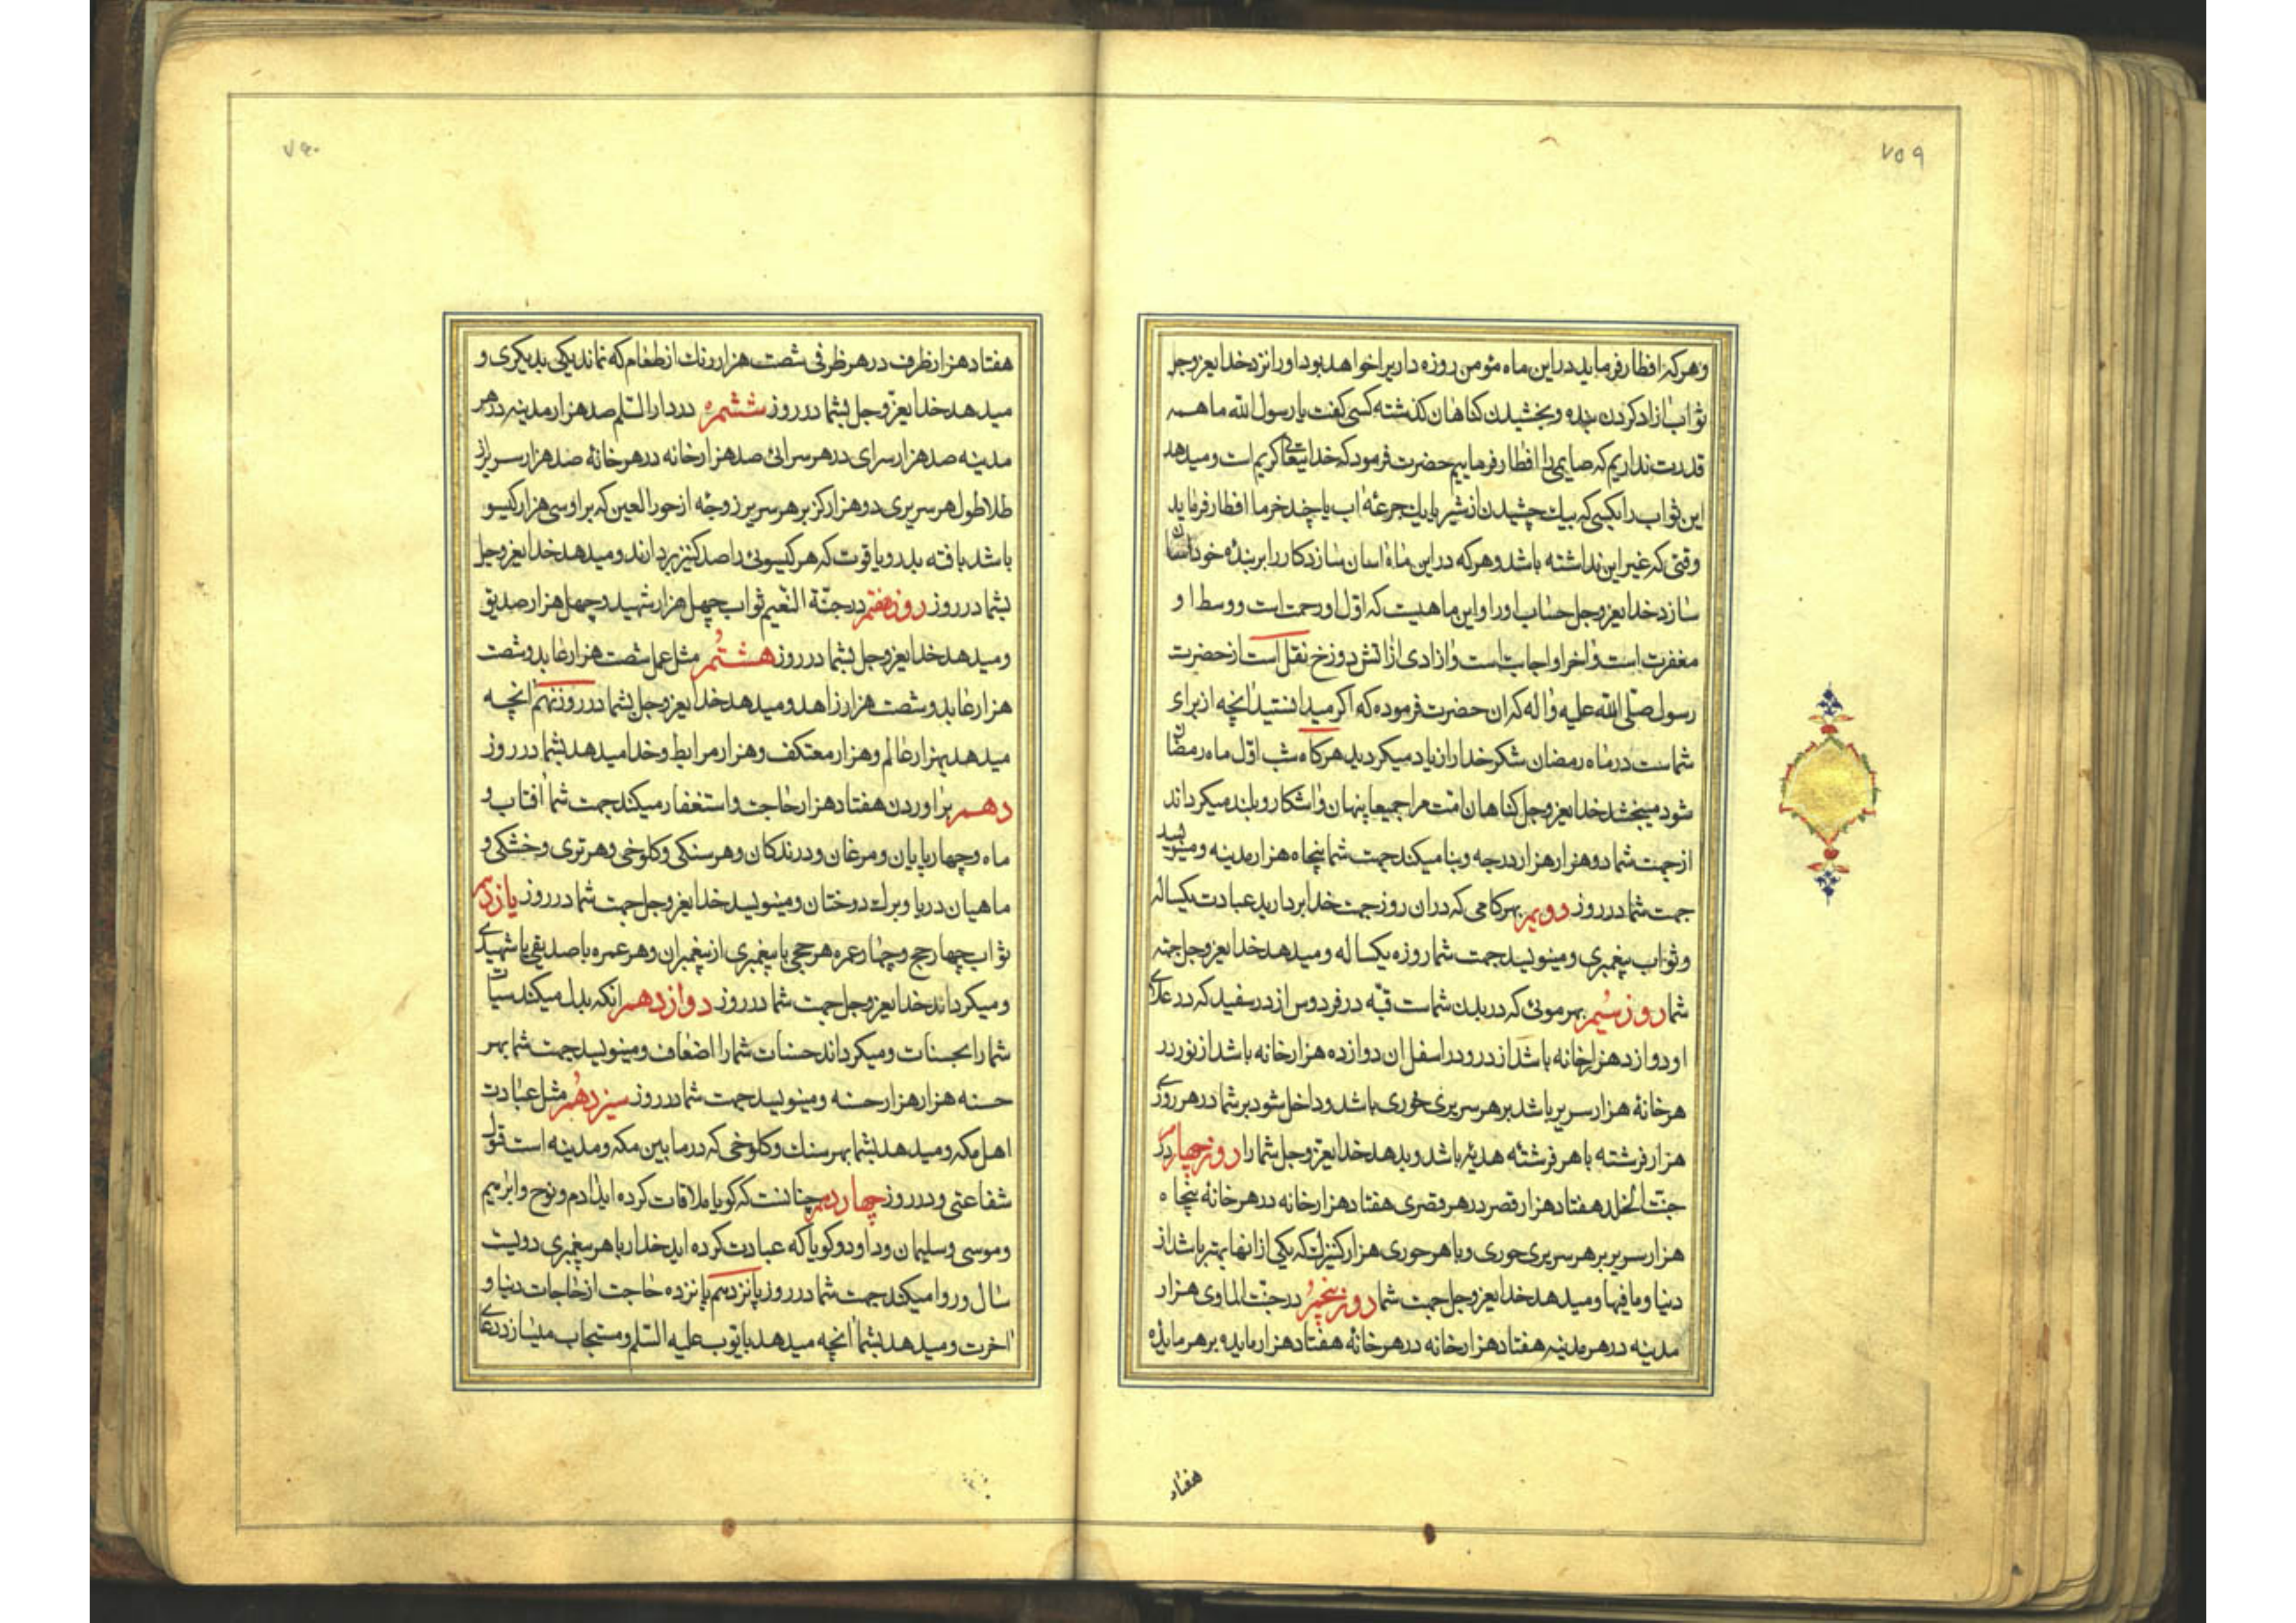 ۷۵۹
وهرکه افطار فرماید در این ماه مؤمن روزه داریرا خواهد بود اورا نزد خدایعزوجل
ثواب ازاد کردن بنده و بخشیدن کناهان کذشته کسی کفت یا رسول الله ما همه
قدرت نداریم که صایمی را افطار فرماییم حضرت فرمود که خدایتعالی کریم است و میدهد
این ثواب را بکسی که بیک چشیدن از شیر یا بیک جرعهٔ اب یا چند خرما افطار فرماید
وقتی که غیر این نداشته باشد و هرکه در این ماه اسان سازد کار را بر بندهٔ خود اسان
سازد خدایعزوجل حساب اورا و این ماهیست که اوّل او رحمت است و وسط او
مغفرت است و اخر او اجابت است و ازادی از اتش دوزخ نقل است از حضرت
رسول صلّی الله علیه و اله که ان حضرت فرموده که اکر میدانستید انچه از برای
شماست در ماه رمضان شکر خدا را زیاد میکردید هرکاه شب اوّل ماه رمضان
شود میبخشد خدایعزوجل کناهان امّت مرا جمیعا پنهان و اشکار و بلند میکرداند
از جهت شما دو هزار هزار درجه و بنا میکند جهت شما پنجاه هزار مدینه و مینویسد
جهت شما در روز دویم بهر کامی که در ان روز جهت خدا بردارید عبادت یکساله
و ثواب پیغمبری و مینویسد جهت شما روزه یکساله و میدهد خدایعزوجل جهته
شما روز سیُم بهر موئی که در بدن شماست قبّه در فردوس از در سفید که در علای
او دوازد هزار خانه باشد از در و در اسفل ان دوازده هزار خانه باشد از نور در
هر خانهٔ هزار سریر باشد بر هر سریری حوری باشد و داخل شود بر شما در هر روزی
هزار فرشته با هر فرشتهٔ هدیهٔ باشد و بدهد خدایعزوجل شما را روز چهارم در
جنّت الخلد هفتاد هزار قصر در هر قصری هفتاد هزار خانه در هر خانهٔ پنجاه
هزار سریر بر هر سریری حوری و با هر حوری هزار کنیزک که یکی از انها بهتر باشد از
دنیا و ما فیها و میدهد خدایعزوجل جهت شما روز پنجم در جنّت الماوی هزار
مدینه در هر مدینه هفتاد هزار خانه در هر خانهٔ هفتاد هزار مایده بر هر مایدهٔ
هفتاد
۷۶۰
هفتاد هزار ظرف در هر ظرفی شصت هزار رنک از طعام که نماند یکی بدیکری و
میدهد خدایعزّوجل بشما در روز ششم در دار السّلم صد هزار مدینه در هر
مدینه صد هزار سرای در هر سرائی صد هزار خانه در هر خانهٔ صد هزار سریر از
طلا طول هر سریری دو هزار کز بر هر سریر زوجهٔ از حور العین که بر او سی هزار کیسو
باشد بافته بدر و یاقوت که هر کیسوئی را صد کنیز بردارند و میدهد خدایعزوجل
بشما در روز روز هفتم در جنّة النّعیم ثواب چهل هزار شهید و چهل هزار صدیق
و میدهد خدایعزوجل بشما در روز هشتُم مثل عمل شصت هزار عابد و شصت
هزار عابد و شصت هزار زاهد و میدهد خدایعزوجل بشما در روز نهم انچه
میدهد بهزار عالم و هزار معتکف و هزار مرابط و خدا میدهد بشما در روز
دهم براوردن هفتاد هزار حاجت و استغفار میکند جهت شما افتاب و
ماه و چهارپایان و مرغان و درندکان و هر سنکی و کلوخی و هر تری و خشکی و
ماهیان دریا و برک درختان و مینویسد خدایعزوجل جهت شما در روز یازدهم
ثواب چهار حج و چهار عمره هر حجی با پیغمبری از پیغمبران و هر عمره با صدیقی یا شهیدی
و میکرداند خدایعزوجل جهت شما در روز دوازدهم انکه بدل میکند سیئات
شما را بحسنات و میکرداند حسنات شما را اضعاف و مینویسد جهت شما بهر
حسنه هزار هزار حسنه و مینویسد جهت شما در روز سیزدهُم مثل عبادت
اهل مکه و میدهد بشما بهر سنک و کلوخی که در ما بین مکه و مدینه است قبول
شفاعتی و در روز چهاردهم چنانست که کویا ملاقات کرده اید ادم و نوح و ابرهیم
و موسی و سلیمان و داود و کویا که عبادت کرده اید خدا را با هر پیغمبری دویست
سال و روا میکند جهت شما در روز پانزدهم پانزده حاجت از حاجات دنیا و
اخرت و میدهد بشما انچه میدهد بایّوب علیه السّلم و مستجاب میسازد دعای